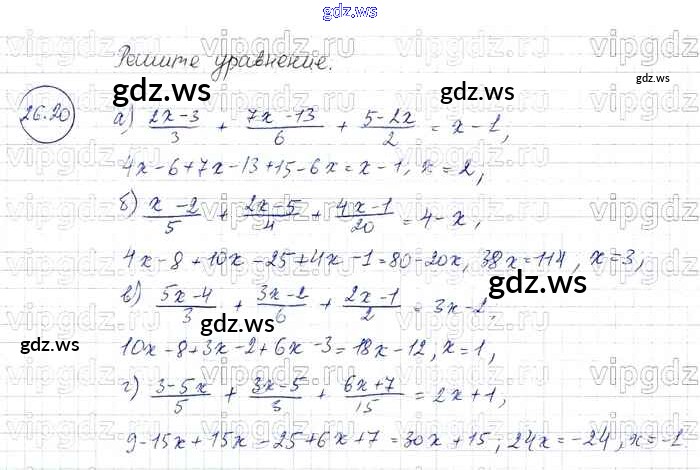 gdz.ws
Решите уравнение.
26.20
а) (2x-3)/3 + (7x-13)/6 + (5-2x)/2 = x-1,
4x-6+7x-13+15-6x=x-1, x=2,
б) (x-2)/5 + (2x-5)/4 + (4x-1)/20 = 4-x,
4x-8+10x-25+4x-1=80-20x, 38x=114, x=3,
в) (5x-4)/3 + (3x-2)/6 + (2x-1)/2 = 3x-2,
10x-8+3x-2+6x-3=18x-12, x=1,
г) (3-5x)/5 + (3x-5)/3 + (6x+7)/15 = 2x+1,
9-15x+15x-25+6x+7=30x+15, 24x=-24, x=-1
vipgdz.ru
gdz.ws